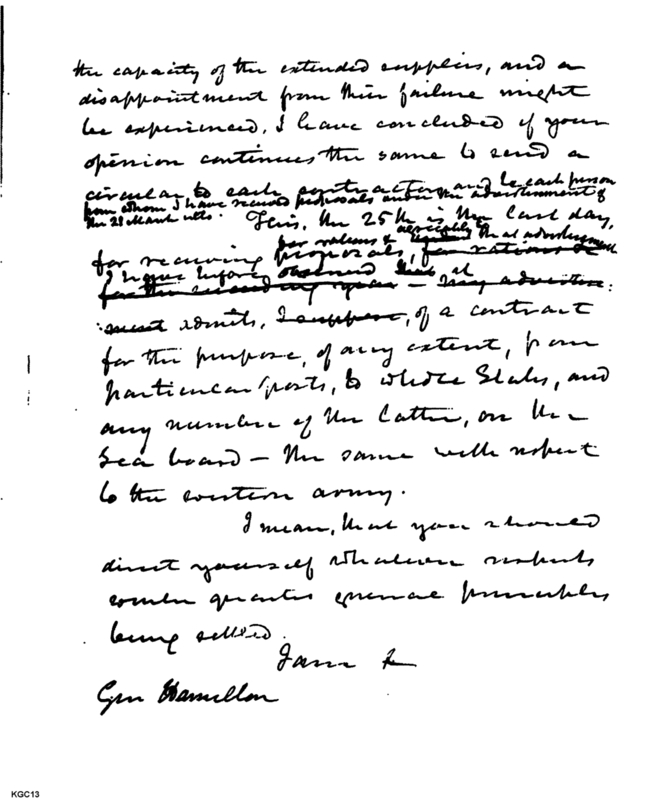 the capacity of the extended supplies, and a
disappointment from their failure might
be experienced, I have concluded if your
opinion continues the same to send a
circular to each contractor and to each person
from whom I have received proposals under the advertisement of
the 21 March ulto. This, the 25th is the last day,
for rations & agreeably to the advertisement
for receiving proposals, for rations &
I have before observed that it
for the ensuing year – my advertise:
:ment admits, I suppose, of a contract
for the purpose, of any extent, from
particular posts, to whole States, and
any number of the latter, on the
Sea board – the same with respect
to the western army.
I mean, that you should
direct yourself whatever respects
winter quarters general principles
being settled.
I am &
Gen Hamilton
KGC13